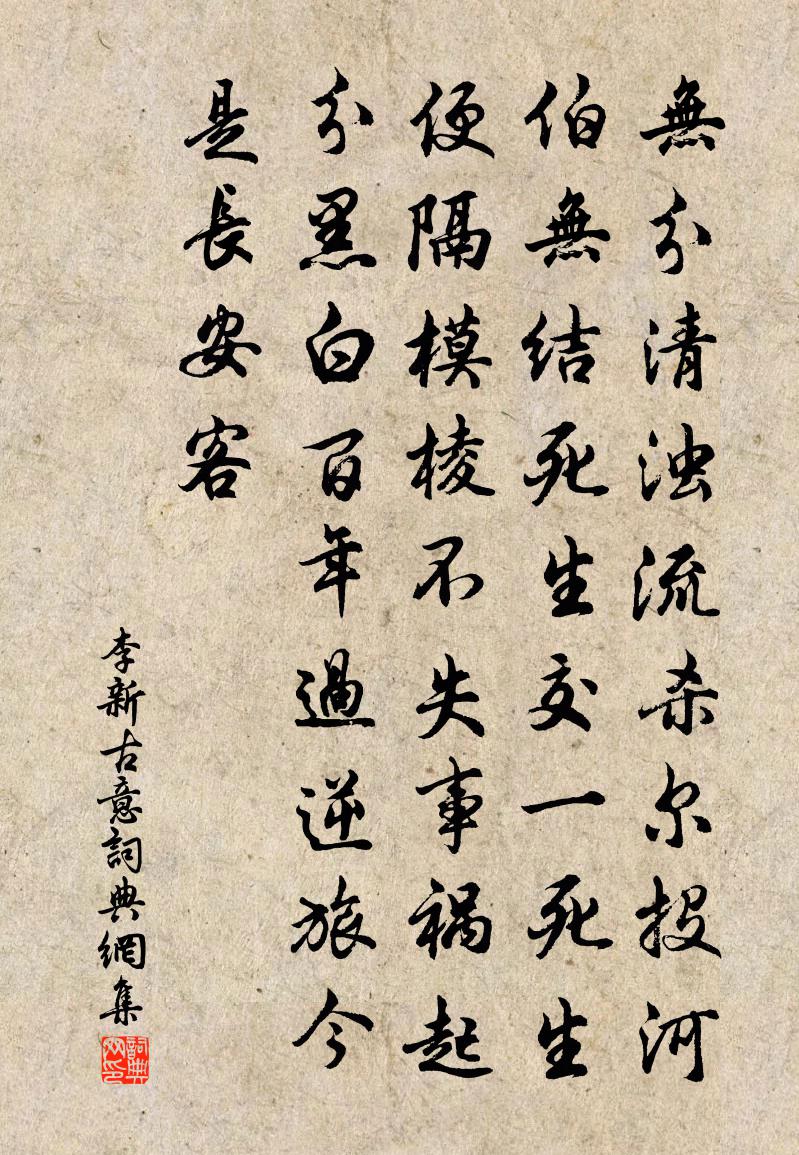 無分清浊流杀尔投河
伯無结死生交一死生
便隔模棱不失事祸起
分黑白百年過逆旅今
是長安客
李新古意詞典網集
詞典网印